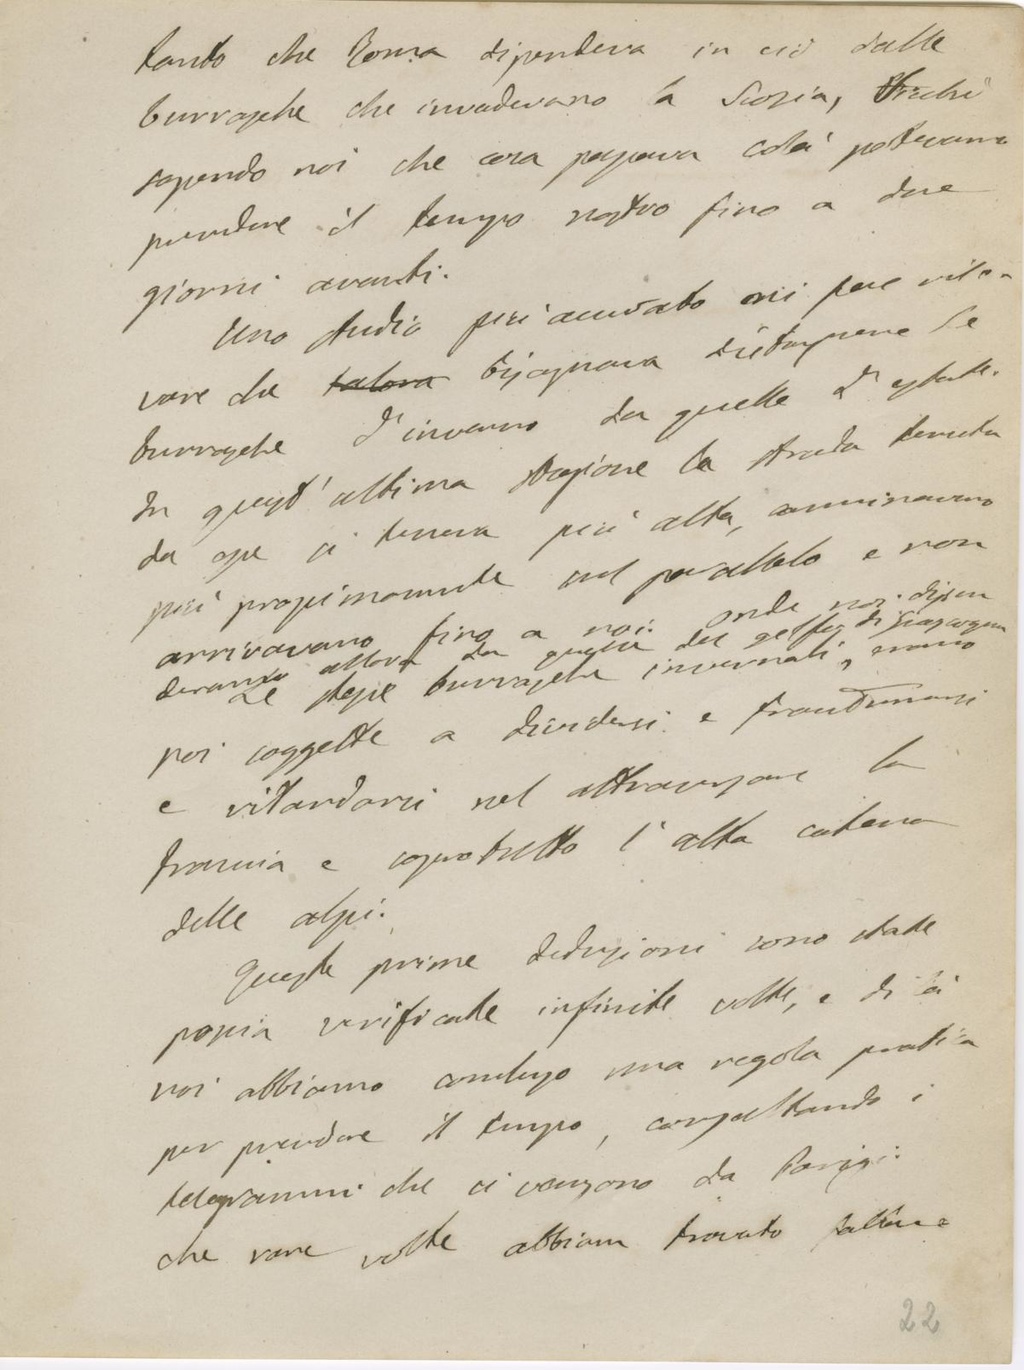 tanto che Roma dipendeva in ciò dalle
burrasche che invadevano la Scozia, sicché
sapendo noi che cosa passava colà potevamo
prevedere il tempo nostro fino a due
giorni avanti.
Uno studio più accurato mi fece rile-
vare che talora bisognava distinguere le
burrasche d'inverno da quelle d'estate.
In quest'ultima stagione la strada tenuta
da esse si teneva più alta, camminavano
più prossimamente sul parallelo e non
arrivavano fino a noi. onde noi dipen
devamo allora da quelle del golfo di Guascogna
Le stesse burrasche invernali, erano
poi soggette a dividersi e frantumarsi
e ritardarsi nel attraversare la
francia e sopratutto l'alta catena
delle alpi.
Queste prime deduzioni sono state
poscia verificate infinite volte, e di là
noi abbiamo concluso una regola pratica
per prevedere il tempo, consultando i
telegrammi che ci vengono da Parigi.
che rare volte abbiam trovato fallace
22